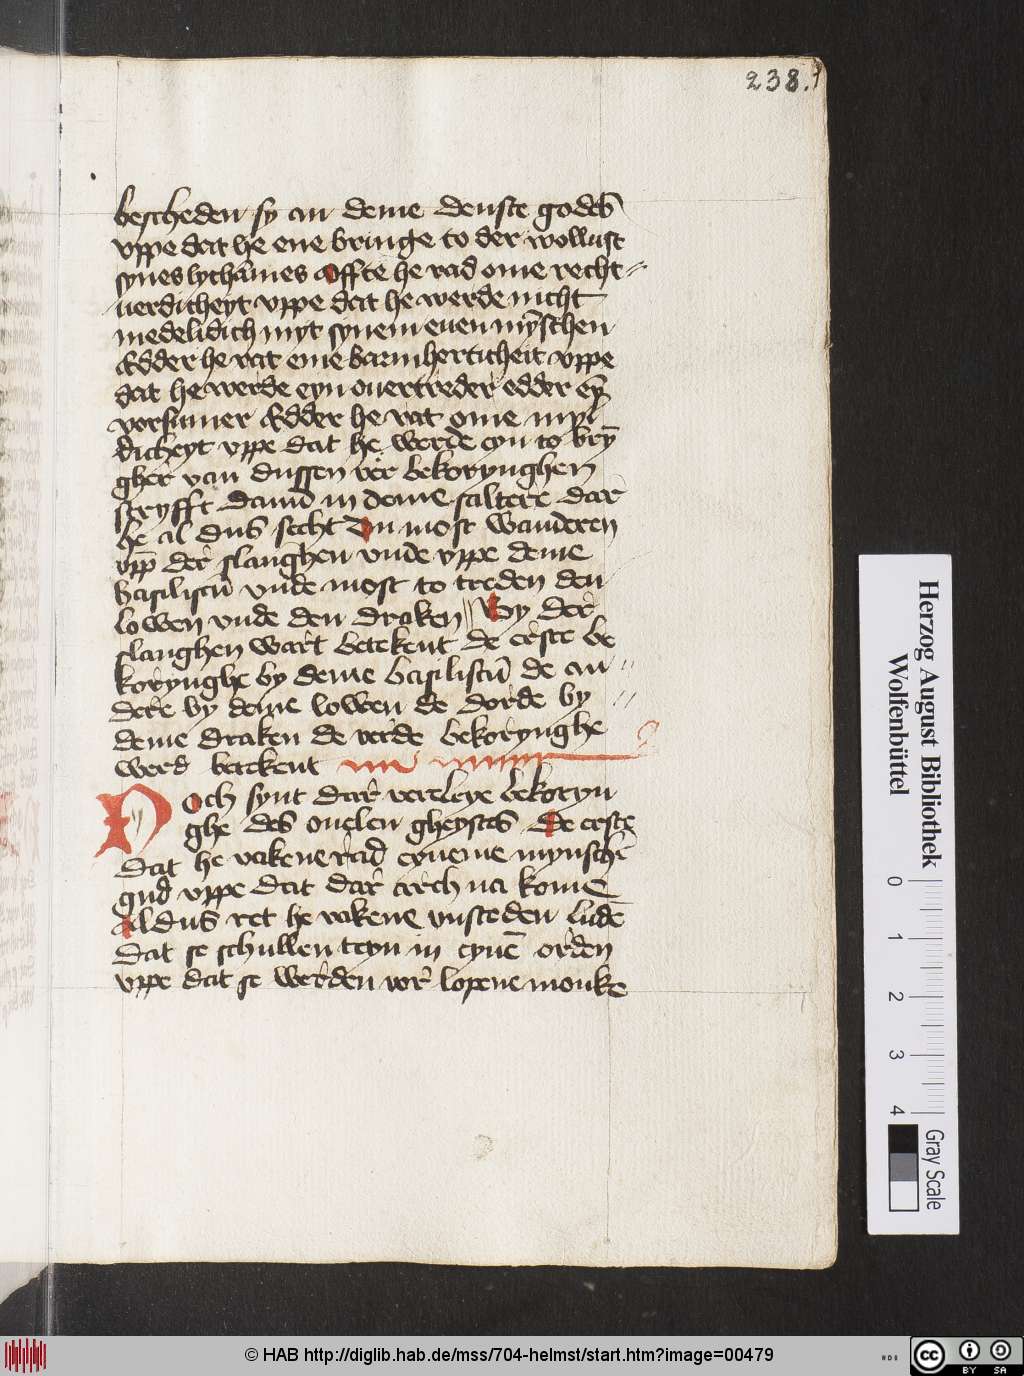 238.
bescheden sy an deme denste godes
vppe dat he ene bringe to der wollust
synes lychames Offte he rad ome recht⸗
uerdicheyt vppe dat he werde nicht
medelidich myt synem euen mȳschen
Edder he rat eme barmherticheit vppe
dat he werde eyn ouertreder edder eȳ
vorsumer Edder he rat ome myl
dicheyt vppe dat he werde eyn to brȳ
gher van dussen ver bekorynghen
scryfft dauid in deme saltere dar
he al dus secht Du most wanderen
vpp der slanghen vnde vppe deme
basiliscū vnde most to treden den
lowen vnde den draken By der
slanghen wart betekent de erste be
korynghe by deme basiliscū de an
dere by deme lowen de dorde by
deme draken de verde bekorynghe
werd betekent
Noch synt dar verleye bekoryn
ghe des ouelen gheystes De erste
dat he vakene rad eyneme mynschē
gud vppe dat dar arch na kome
Aldus ret he vakene vnsteden ludē
dat se schullen teyn in eynē orden
vppe dat se werden vor lopene monke
Herzog August Bibliothek
Wolfenbüttel
0 1 2 3 4
Gray Scale
© HAB http://diglib.hab.de/mss/704-helmst/start.htm?image=00479
cc BY SA